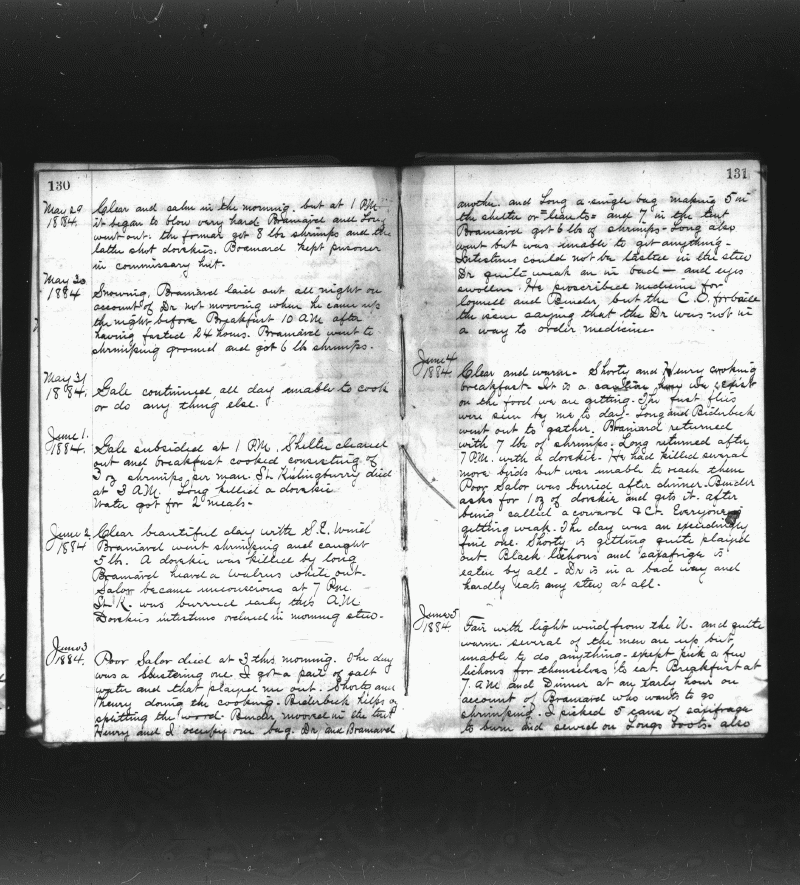 130
May 29
1884.
Clear and calm in the morning. but at 1 P.M.
it began to blow very hard Bramard and Long
went out. the former got 8 lbs shrimps and the
latter shot dovskies. Bramard kept prisoner
in commissary hut.
May 30
1884
Snowing. Bramard laid out all night on
account of Dr not mooving when he came up
the night before Breakfast 10 A.M. after
having fasted 24 hours. Bramard went to
shrimping ground and got 6 lb shrimps.
May 31
1884.
Gale continued all day unable to cook
or do any thing else.
June 1.
1884.
Gale subsided at 1 P.M. Shelter cleared
out and breakfast cooked consisting of
3 oz shrimps per man. Lt. Kislingburry died
at 3 A.M. Long killed a dovskie
Water got for 2 meals.
June 2
1884
Clear beautiful day with S.E. wind
Bramard went shrimping and caught
5 lb. A dovskie was killed by long
Bramard heard a walrus while out.
Salor became unconscious at 7 P.M.
Lt. K. was burried early this A.M
Dovskies intestines in morning stew.
June 3
1884.
Poor Salor died at 3 this morning. The day
was a blustering one I got a pail of salt
water and that played me out. Shorty and
Henry doing the cooking. Biderbeck helps by
splitting the wood. Bender mooved in the tent
Henry and I occupy one bag. Dr. and Bramard
131
another and Long a single bag making 5 in
the shelter or "lean to" and 7 in the tent
Bramard got 6 lbs of shrimps. Long also
went but was unable to get anything.
Intestines could not be in the stew
Dr quite weak an in bad — and eyes
swolen. He proscribed medicine for
and Bender, but the C.O. forbade
the issue saying that the Dr was not in
a way to order medicine.
June 4
1884.
Clear and warm. Shorty and Henry cooking
breakfast. It is a how we exist
on the food we are getting. The first flies
were seen by me to day. Long and Biderbeck
went out to gather. Bramard returned
with 7 lbs of shrimps. Long returned after
7 P.M. with a dovskie. He had killed several
more birds but was unable to reach them
Poor Salor was buried after dinner. Bender
asks for 1 oz of dovskie and gets it. after
being called a coward &c. Everyone is
getting weak. The day was an exceedingly
fine one. Shorty is getting quite played
out. Black lichons and saxafrige is
eaten by all. Dr is in a bad way and
hardly eats any stew at all.
June 5
1884.
Fair with light wind from the N. and quite
warm. several of the men are up but
unable to do anything. exept pick a few
lichons for themselves to eat. Breakfast at
7. A.M and Dinner at an early hour on
account of Bramard who wants to go
shrimping. I picked 5 cans of saxifrage
to burn and sewed on Longs boots. also